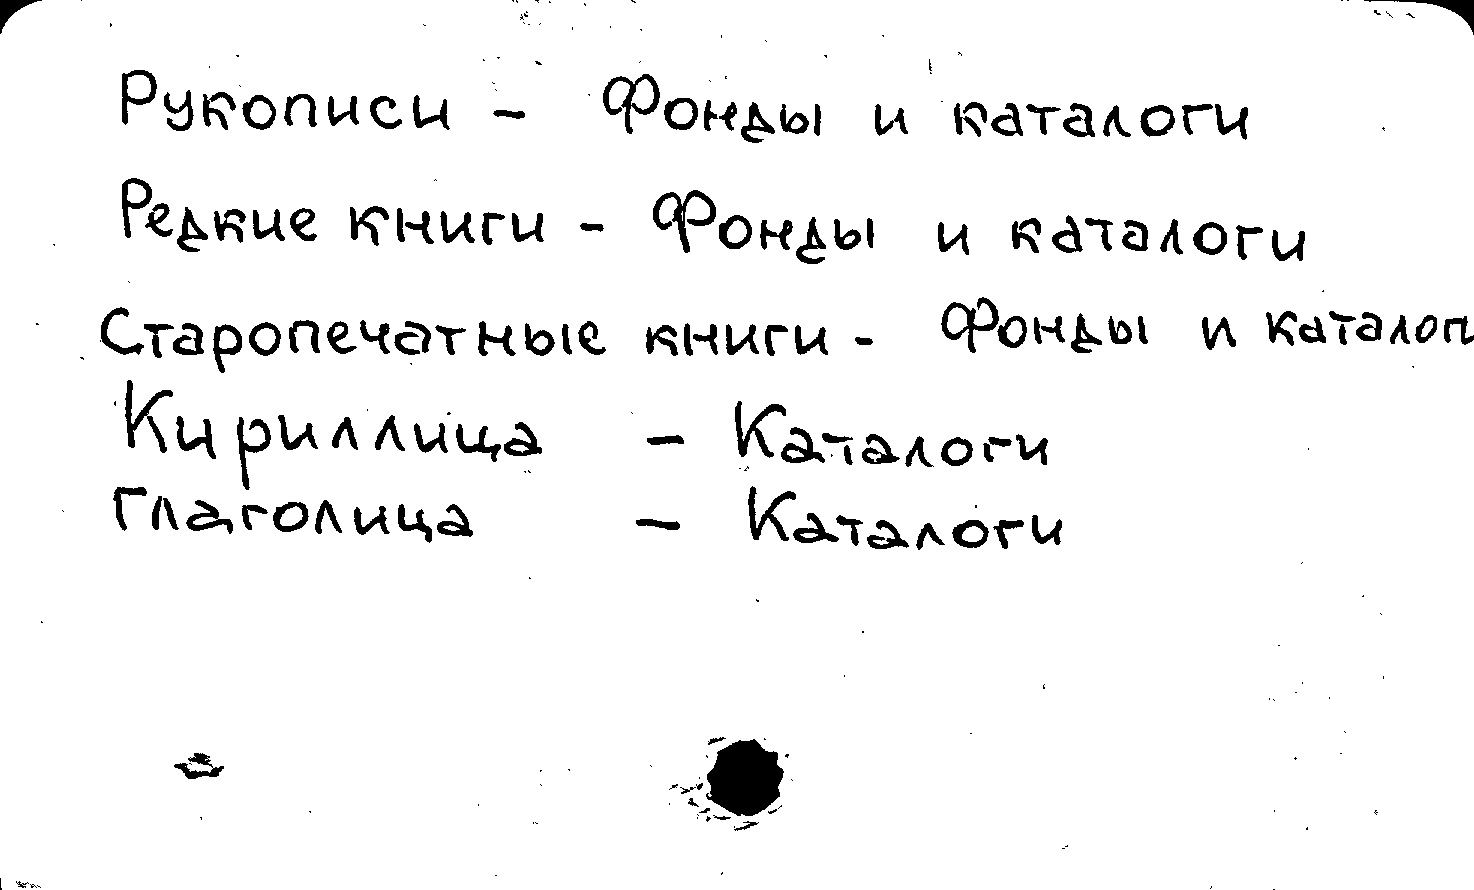 Рукописи - Фонды и каталоги
Редкие книги - Фонды и каталоги
Старопечатные книги - Фонды и катало
Кириллица - Каталоги
Глаголица - Каталоги